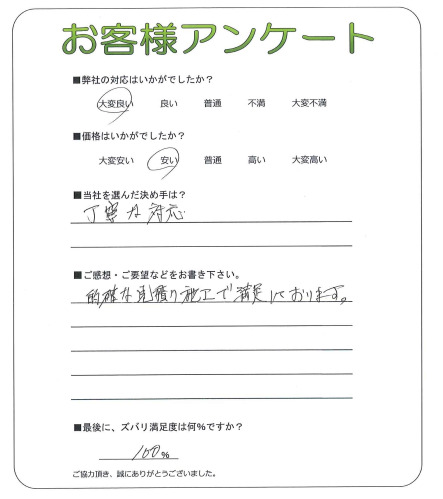 お客様アンケート
■弊社の対応はいかがでしたか？
大変良い 良い 普通 不満 大変不満
■価格はいかがでしたか？
大変安い 安い 普通 高い 大変高い
■当社を選んだ決め手は？
丁寧な対応
■ご感想・ご要望などをお書き下さい。
的確な見積り施工で満足しております。
■最後に、ズバリ満足度は何%ですか？
100%
ご協力頂き、誠にありがとうございました。